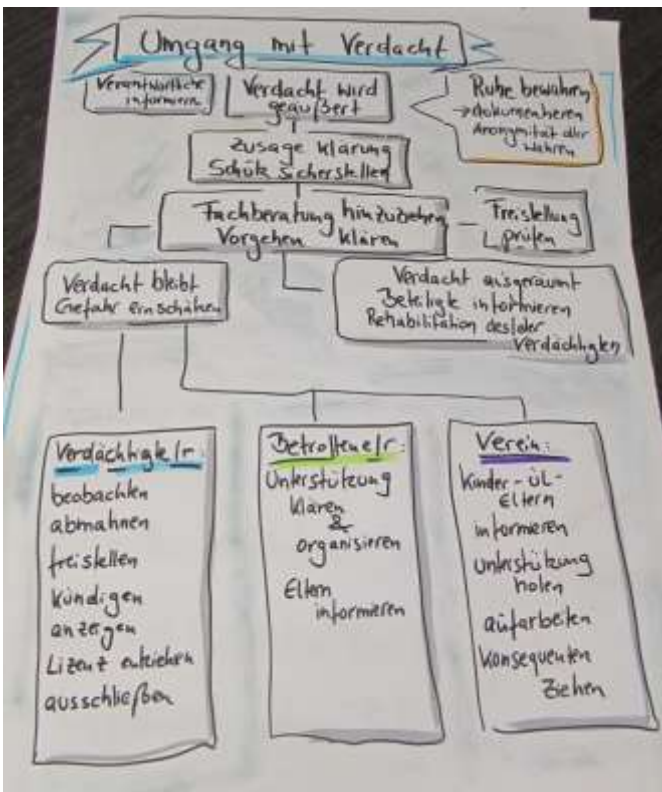 Umgang mit Verdacht
Verantwortliche
informieren
Verdacht wird
geäußert
Ruhe bewahren
→ dokumentieren
Anonymität aller
wahren
Zusage Klärung
Schutz sicherstellen
Fachberatung hinzuziehen
Vorgehen klären
Freistellung
prüfen
Verdacht bleibt
Gefahr einschätzen
Verdacht ausgeräumt
Beteiligte informieren
Rehabilitation des/der
Verdächtigten
Verdächtigte/r:
beobachten
abmahnen
freistellen
kündigen
anzeigen
Lizenz entziehen
ausschließen
Betroffene/r:
Unterstützung
klären
&
organisieren
Eltern
informieren
Verein:
Kinder-ÜL-
Eltern
informieren
Unterstützung
holen
aufarbeiten
Konsequenzen
Ziehen